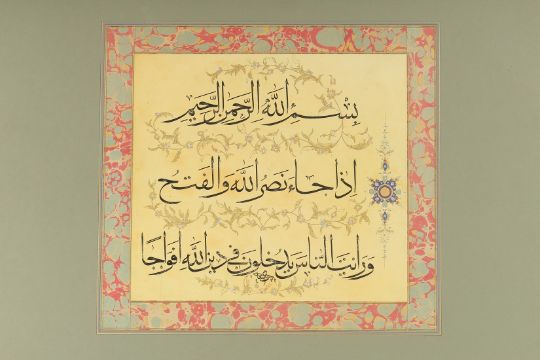 بِسْمِ اللَّهِ الرَّحْمٰنِ الرَّحِيمِ
إِذَا جَاءَ نَصْرُ اللَّهِ وَالْفَتْحُ
وَرَأَيْتَ النَّاسَ يَدْخُلُونَ فِي دِينِ اللَّهِ أَفْوَاجًا